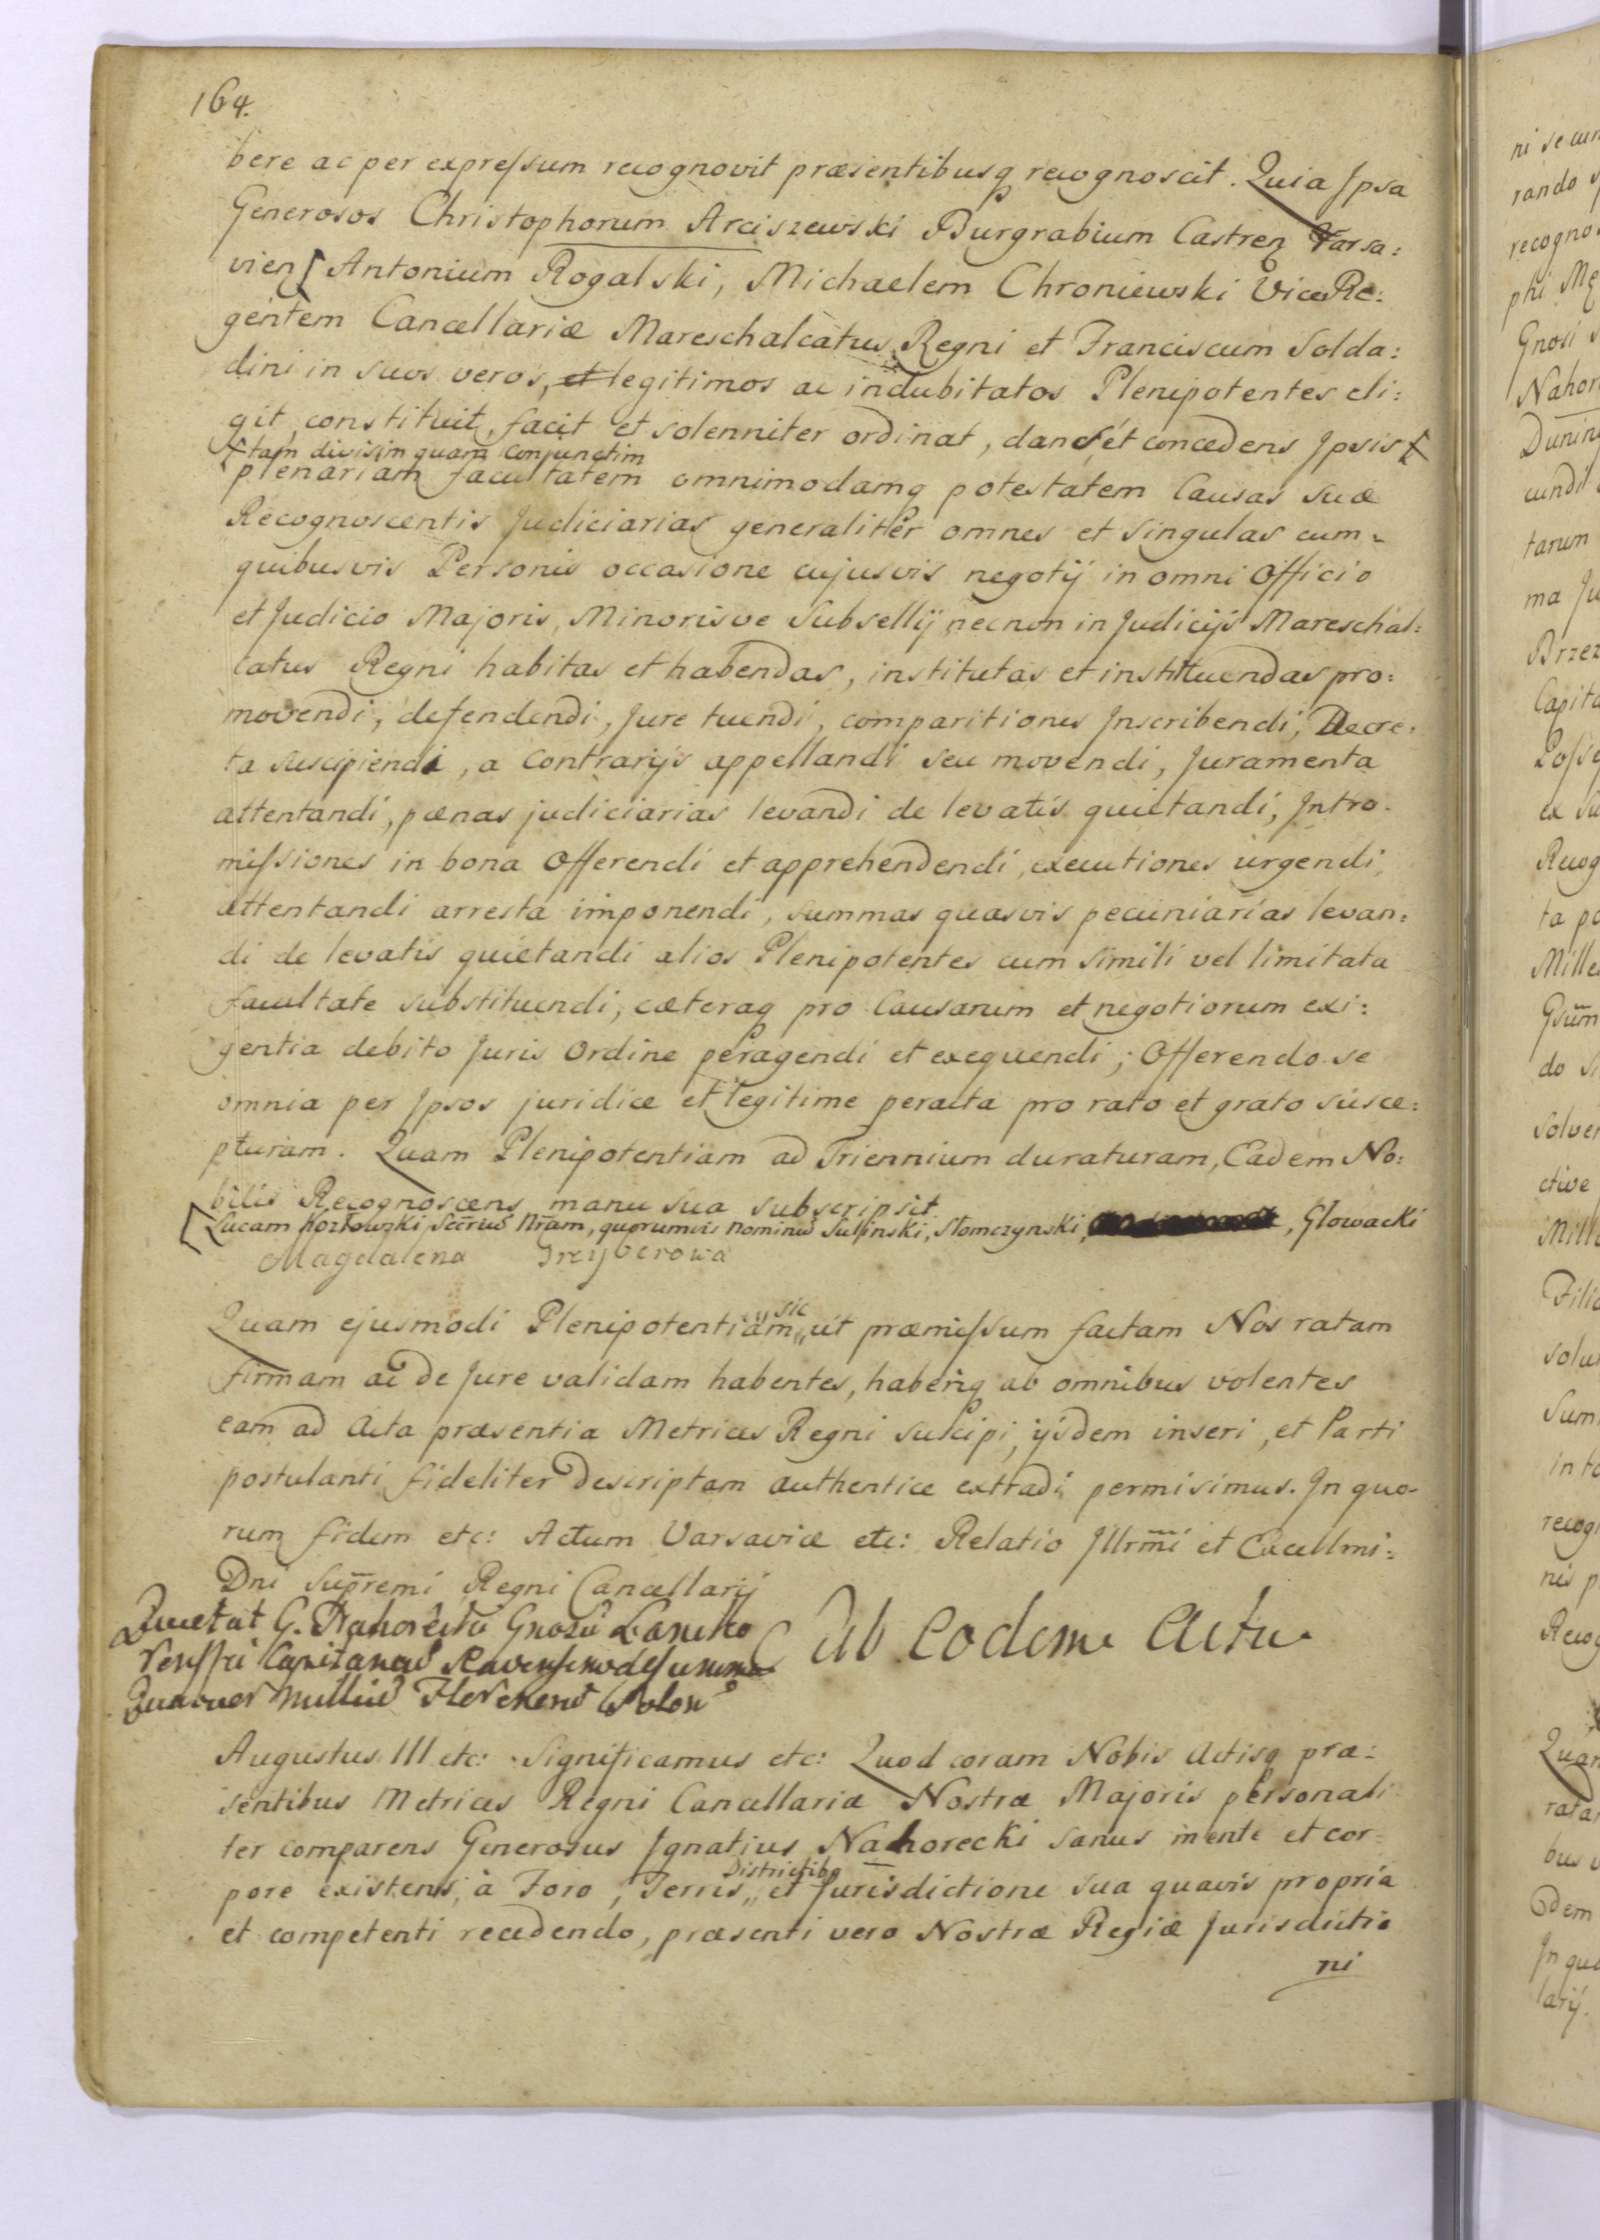 164.
bere ac per expressum recognovit præsentibusq recognoscit. Quia Ipsa
Generosos Christophorum Arciszewski Burgrabium Castren Varsa:
vien [ Antonium Rogalski, Michaelem Chroniewski Vice Re:
gentem Cancellariæ Mareschalcatus Regni et Franciscum Solda:
dini in suos veros, et legitimos ac indubitatos Plenipotentes eli:
git, constituit, facit et solenniter ordinat, dans et concedens Ipsis [
[ tam divisim quam conjunctim
plenariam facultatem omnimodamq potestatem Causas suæ
Recognoscentis Judiciarias generaliter omnes et singulas cum
quibusvis Personis occasione cujusvis negotij in omni Officio
et Judicio Majoris, Minorisve Subsellij necnon in Judicijs Mareschal:
catus Regni habitas et habendas, institutas et instituendas pro:
movendi, defendendi, Jure tuendi, comparitiones Inscribendi, Decre:
ta suscipiendi, a Contrarijs appellandi seu movendi, Juramenta
attentandi, pænas judiciarias levandi de levatis quietandi, Intro-
missiones in bona Offerendi et apprehendendi, executiones urgendi,
attentandi arresta imponendi, summas quasvis pecuniarias levan:
di de levatis quietandi alios Plenipotentes cum simili vel limitata
facultate substituendi, cæteraq pro Causarum et negotiorum exi:
gentia debito Juris Ordine peragendi et exequendi; Offerendo se
omnia per Ipsos juridice et legitime peracta pro rato et grato susce:
pturam. Quam Plenipotentiam ad Triennium duraturam, Eadem No:
bilis Recognoscens manu sua subscripsit.
[ Lucam Kozłowski Secrius Nram, quorumvis Nominus Sulinski, Słomczynski, , Glowacki
Magdalena Greyberowa
Quam ejusmodi Plenipotentiam,, sic ut præmissum factam Nos ratam
firmam ac de Jure validam habentes, haberiq ab omnibus volentes
eam ad Acta præsentia Metrices Regni suscipi, ijsdem inseri, et Parti
postulanti fideliter Descriptam authentice extradi permisimus. In quo-
rum fidem etc: Actum Varsaviæ etc: Relatio Illrmi et Excellmi:
Dni Supremi Regni Cancellarij
Quietat G. Nahorecki Gnosu
Capitaneus
Millius Polon
Ab eodem Actu
Augustus III etc: Significamus etc: Quod coram Nobis Actisq præ:
sentibus Metrices Regni Cancellariæ Nostræ Majoris personali
ter comparens Generosus Ignatius Nahorecki sanus mente et cor
pore existens, à Foro, Terris,, Districtibq et Jurisdictione sua quavis propria
et competenti recedendo, præsenti vero Nostræ Regiæ Jurisdictio
ni